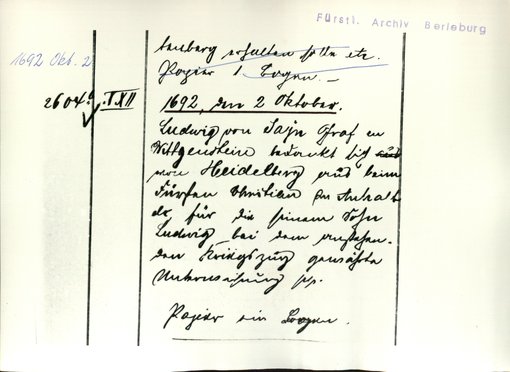 Fürstl. Archiv Berleburg
1692 Okt. 2
tenberg erhalten solle etc.
Papier 1. Bogen. –
2604a T.XII
1692, den 2 Oktober.
Ludwig von Sayn Graf zu
Wittgenstein bedankt sich
von Heidelberg aus beim
Fürsten Christian zu Anhalt
etc, für die seinem Sohn
Ludwig bei dem
den Kriegszug gewährte
Unterweisung pp.
Papier ein Bogen.